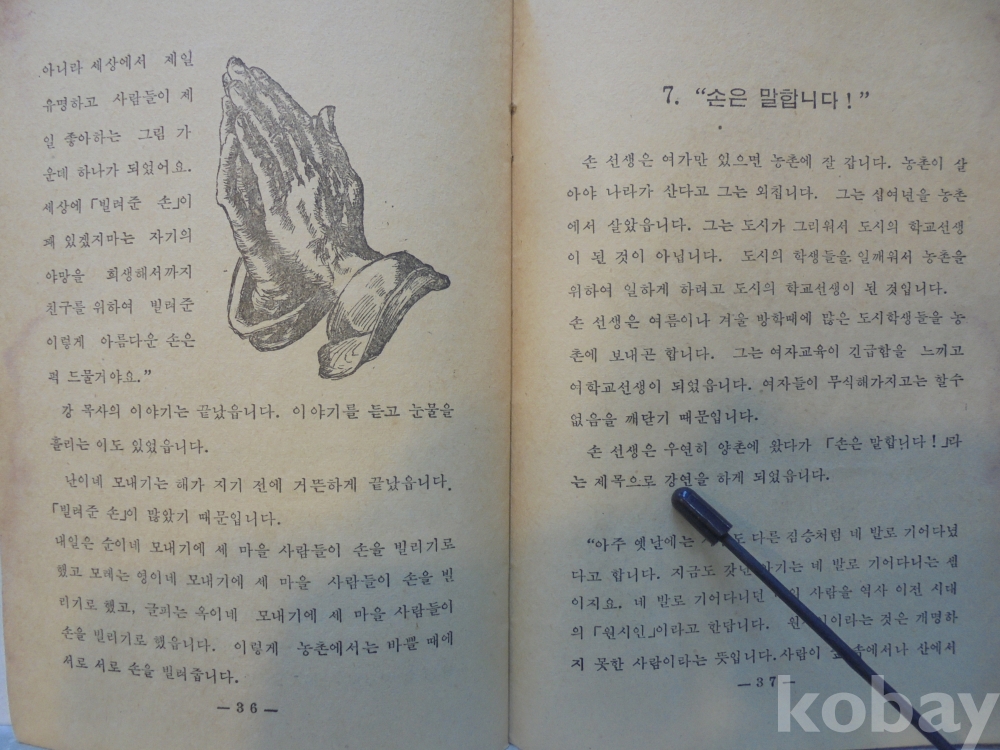 아니라 세상에서 제일
유명하고 사람들이 제
일 좋아하는 그림 가
운데 하나가 되었어요.
세상에 「빌려준 손」이
꽤 있겠지마는 자기의
야망을 희생해서까지
친구를 위하여 빌려준
이렇게 아름다운 손은
퍽 드물거야요.”
강 목사의 이야기는 끝났읍니다. 이야기를 듣고 눈물을
흘리는 이도 있었읍니다.
난이네 모내기는 해가 지기 전에 거뜬하게 끝났읍니다.
「빌려준 손」이 많았기 때문입니다.
내일은 순이네 모내기에 세 마을 사람들이 손을 빌리기로
했고 모레는 영이네 모내기에 세 마을 사람들이 손을 빌
리기로 했고, 글피는 옥이네 모내기에 세 마을 사람들이
손을 빌리기로 했읍니다. 이렇게 농촌에서는 바쁠 때에
서로 서로 손을 빌려줍니다.
—36—
7. “손은 말합니다!”
손 선생은 여가만 있으면 농촌에 잘 갑니다. 농촌이 살
아야 나라가 산다고 그는 외칩니다. 그는 십여년을 농촌
에서 살았읍니다. 그는 도시가 그리워서 도시의 학교선생
이 된 것이 아닙니다. 도시의 학생들을 일깨워서 농촌을
위하여 일하게 하려고 도시의 학교선생이 된 것입니다.
손 선생은 여름이나 겨울 방학때에 많은 도시학생들을 농
촌에 보내곤 합니다. 그는 여자교육이 긴급함을 느끼고
여학교선생이 되었읍니다. 여자들이 무식해가지고는 할수
없음을 깨닫기 때문입니다.
손 선생은 우연히 양촌에 왔다가 「손은 말합니다!」라
는 제목으로 강연을 하게 되었읍니다.
“아주 옛날에는 다른 짐승처럼 네 발로 기어다녔
다고 합니다. 지금도 갓난 아기는 네 발로 기어다니는 셈
이지요. 네 발로 기어다니던 사람을 역사 이전 시대
의 「원시인」이라고 한답니다. 이라는 것은 개명하
지 못한 사람이라는 뜻입니다. 사람이 속에서나 산에서
—37—
kobay